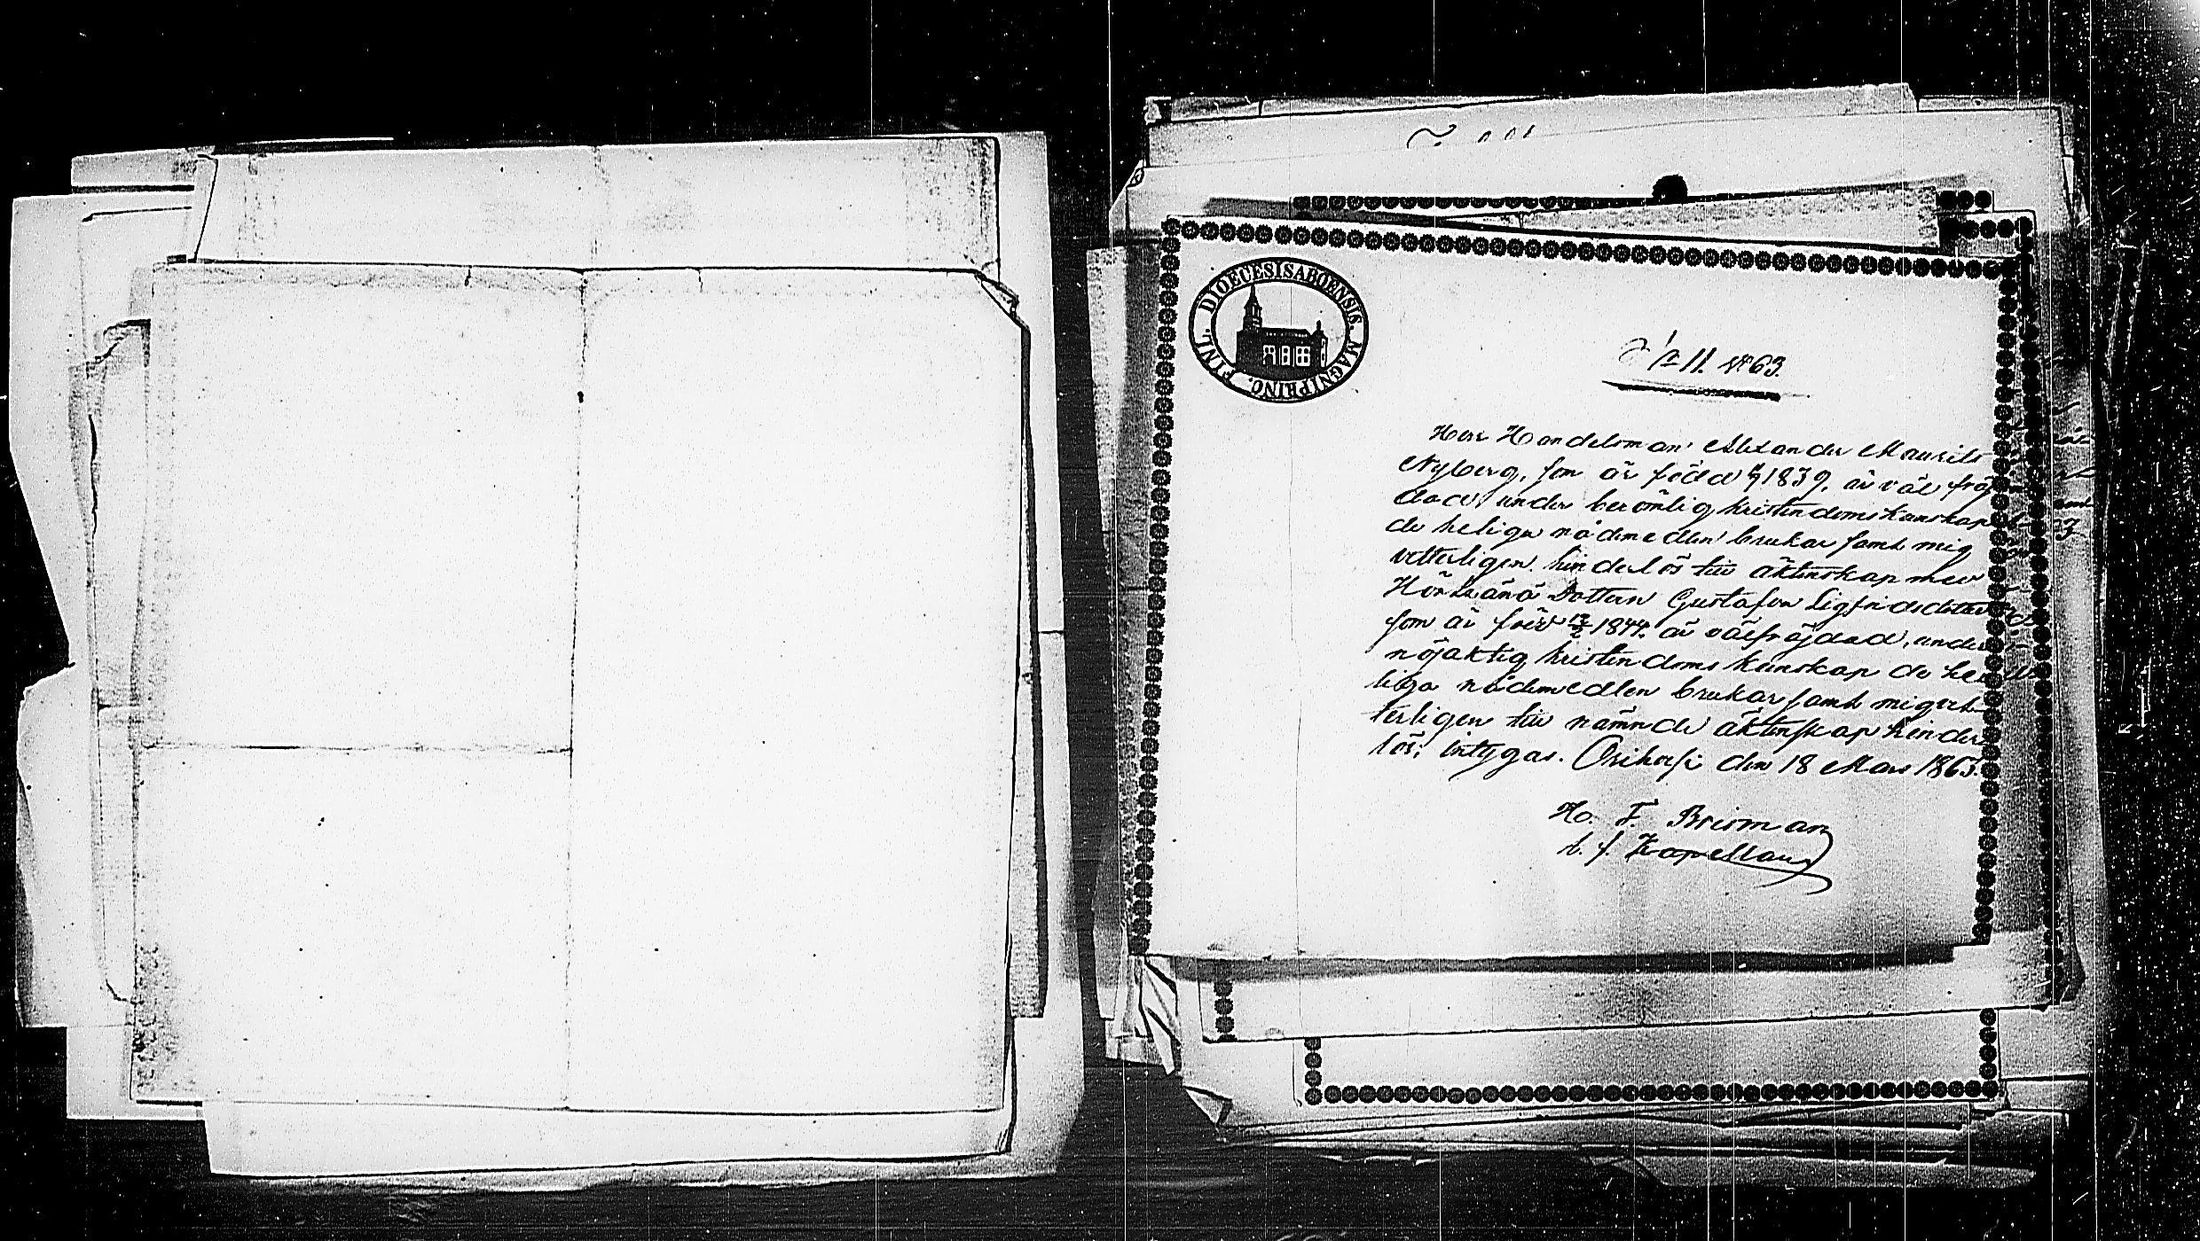 DIOECESIS ABOENSIS. MAGNI PRINC. FINL.
11. 1863.
Herr Handelsman Alexander Maurits
Nyberg, som är född 1839, är väl fräj
dad, under berömlig kristendomskunskap
de heliga nådemedlen brukar samt mig
vetterligen hinderlös till äktenskap med
Dottern Gustafva Sigfridsdotter
som är född 1844, är välfräjdad, under
nöjaktig kristendoms kunskap de he
liga nådemedlen brukar samt mig vet
terligen till nämnde äktenskap hinder
lös; intygar. Orihvesi den 18 Mars 1863.
H. F. Brisman
t. f. Kapellan